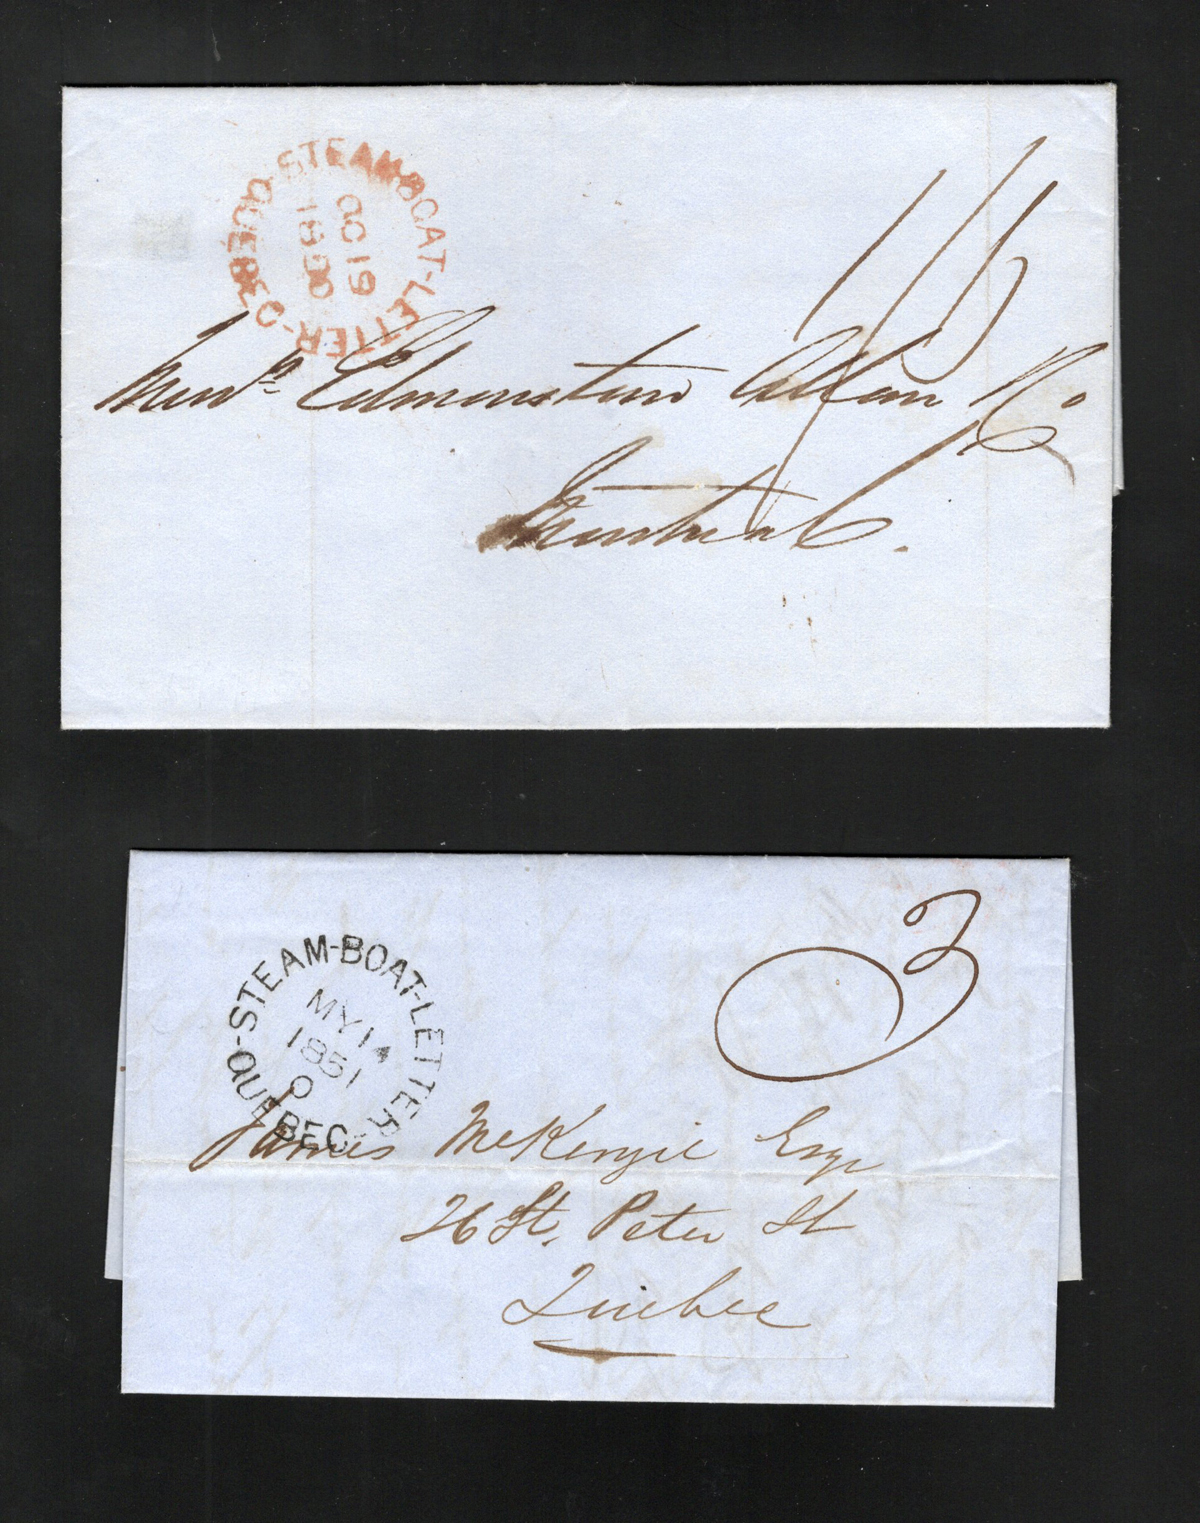 STEAM-BOAT-LETTER-QUEBEC-
OC 19
1850
1/6
Mess.rs Edmonstone Allan & Co
Montreal.
-STEAM-BOAT-LETTER-QUEBEC
MY 14
1851
3
James McKenzie Esqr
26 St. Peter St
Quebec